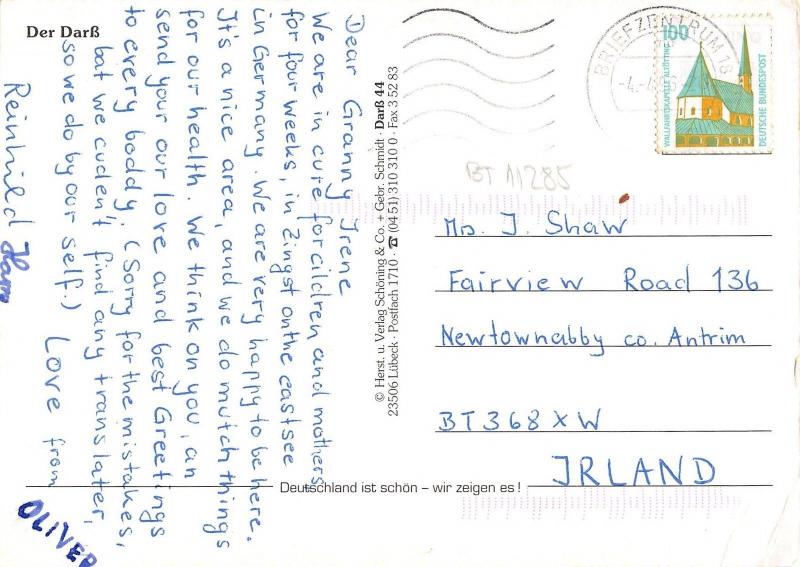 Der Darß
Dear Granny Irene
We are in cure forcildren and mothers
for four weeks, in Zingst on the eastsee
in Germany. We are very happy to be here.
It's a nice area, and we do mutch things
for our health. We think on you, an
send your our love and best Greetings
to every boddy. (Sorry for the mistakes,
bat we cuden't find any translater,
so we do by our self.) Love from
Reinhild
OLIVER
© Herst. u. Verlag Schöning & Co. + Gebr. Schmidt · Darß 44
23506 Lübeck · Postfach 1710 · ☎ (04 51) 310 310 0 · Fax 3 52 83
BRIEFZENTRUM 18
100
WALLFAHRTSKAPELLE ALTÖTTING
DEUTSCHE BUNDESPOST
BT 11285
Ms. J. Shaw
Fairview Road 136
Newtownabby co. Antrim
BT368XW
JRLAND
Deutschland ist schön – wir zeigen es!